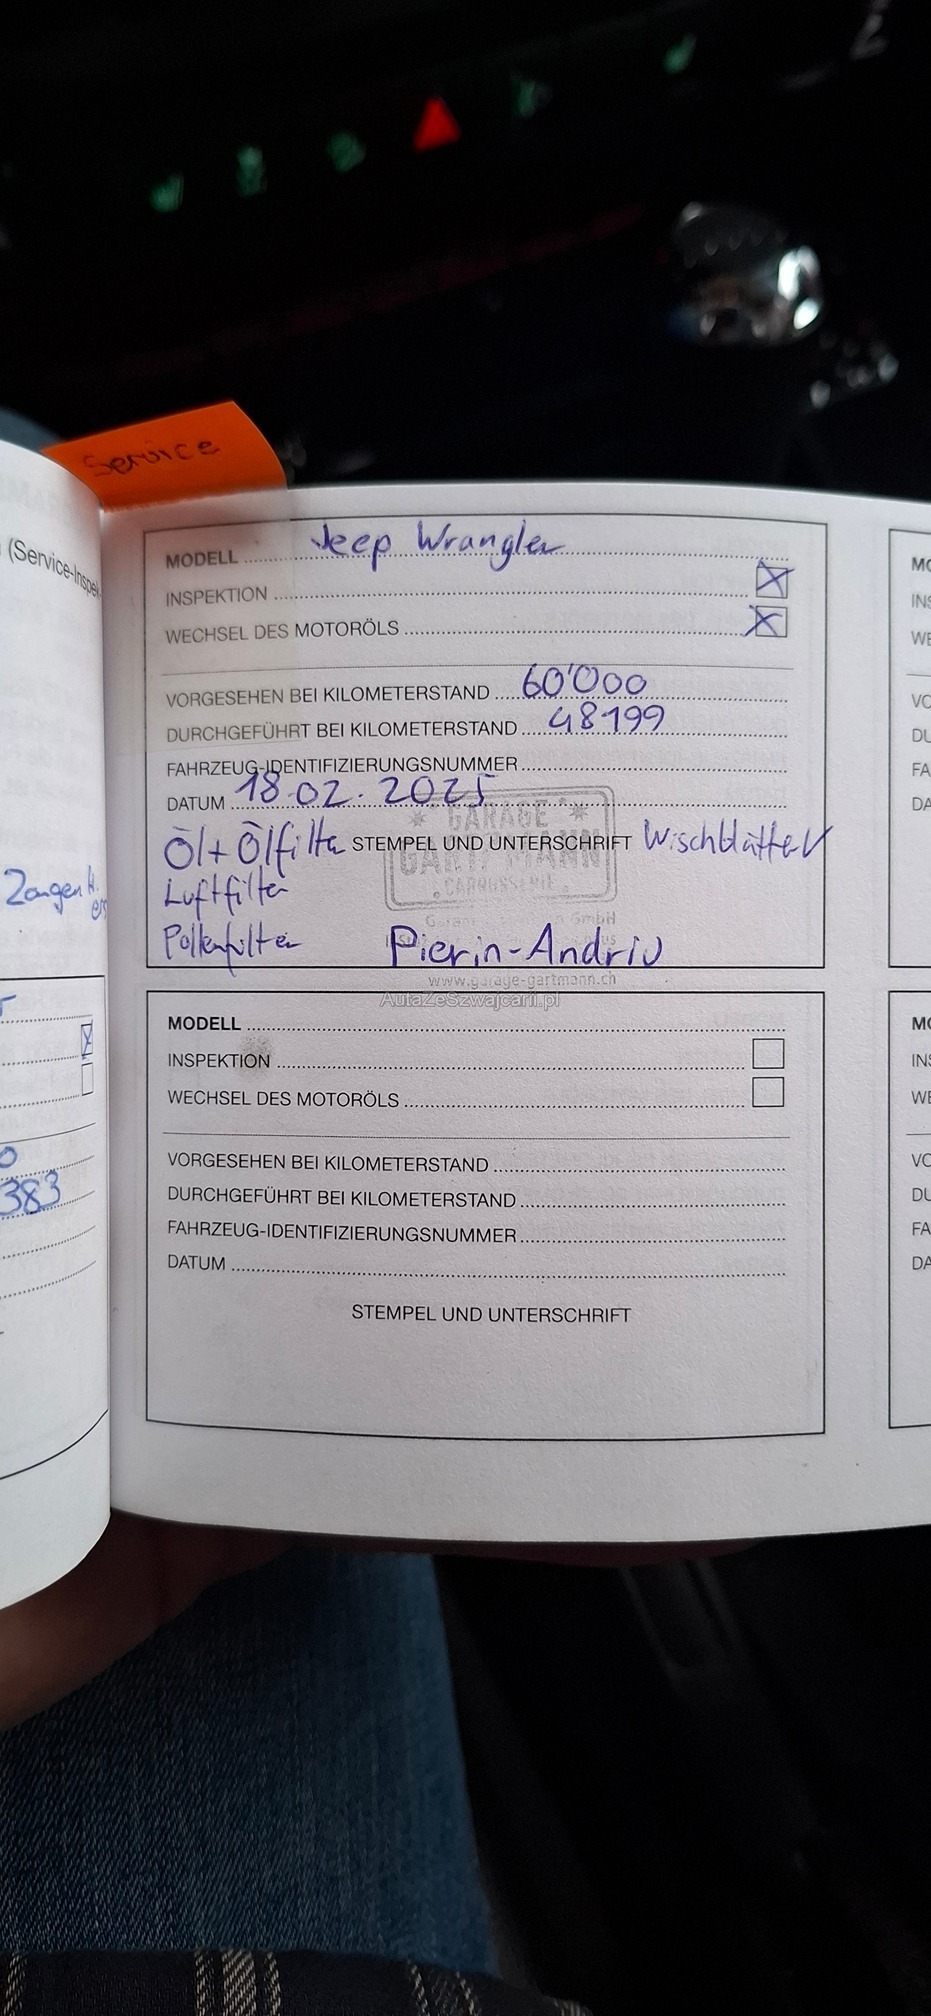 Service
(Service-Inspek
MODELL Jeep Wrangler
INSPEKTION
WECHSEL DES MOTORÖLS
VORGESEHEN BEI KILOMETERSTAND 60'000
DURCHGEFÜHRT BEI KILOMETERSTAND 48199
FAHRZEUG-IDENTIFIZIERUNGSNUMMER
DATUM 18.02.2025
GARAGE
Öl + Ölfilter STEMPEL UND UNTERSCHRIFT Wischblätter
GARTMANN
CARROSSERIE
Luftfilter
GmbH
Pollenfilter Pierin-Andriu
www.garage-gartmann.ch
AutaZeSzwajcarii.pl
MODELL
INSPEKTION
WECHSEL DES MOTORÖLS
VORGESEHEN BEI KILOMETERSTAND
DURCHGEFÜHRT BEI KILOMETERSTAND
FAHRZEUG-IDENTIFIZIERUNGSNUMMER
DATUM
STEMPEL UND UNTERSCHRIFT
Zangen
383
MO
INS
WE
VO
DU
FA
DA
MO
INS
WE
VO
DU
FA
DA